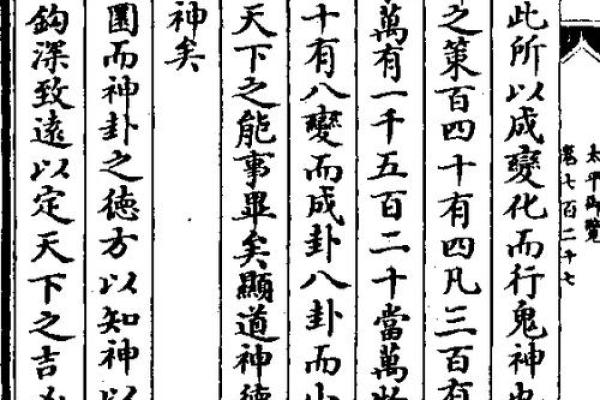 太平御覽
卷七百二十七
此所以成變化而行鬼神也
之策百四十有四凡三百有
萬有一千五百二十當萬物
十有八變而成卦八卦而小
天下之能事畢矣顯道神德
神矣
圓而神卦之德方以知神以
鈎深致遠以定天下之吉凶